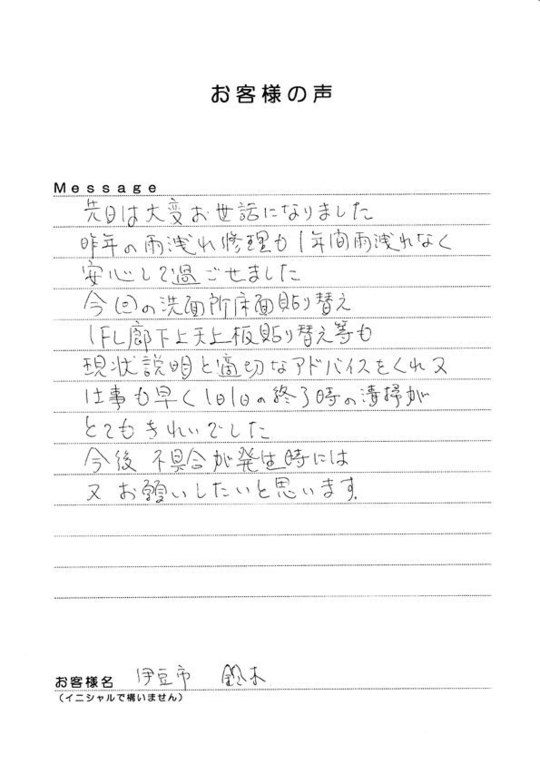 お客様の声
Message
先日は大変お世話になりました
昨年の雨洩れ修理も1年間雨洩れなく
安心して過ごせました
今回の洗面所床面貼り替え
1FL廊下上天上板貼り替え等も
現状説明と適切なアドバイスをくれ又
仕事も早く1日1日の終了時の清掃が
とてもきれいでした
今後 不具合が発生時には
又 お願いしたいと思います.
お客様名 伊豆市 鈴木
(イニシャルで構いません)